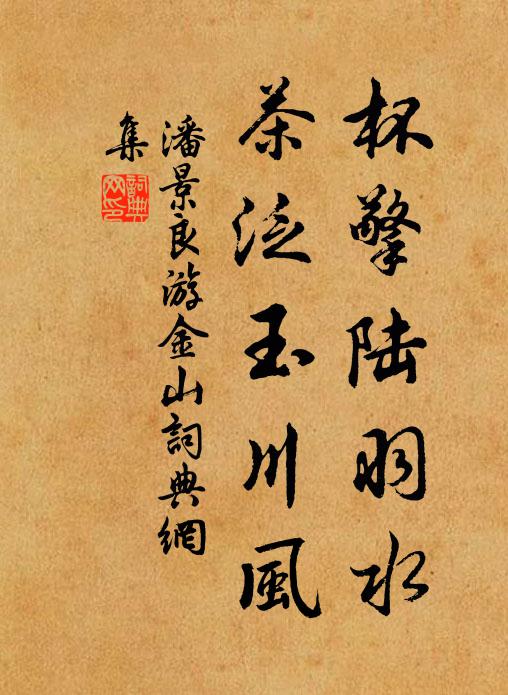 杯擎陆羽水
茶泛玉川風
潘景良游金山詞典網
集
詞典网印